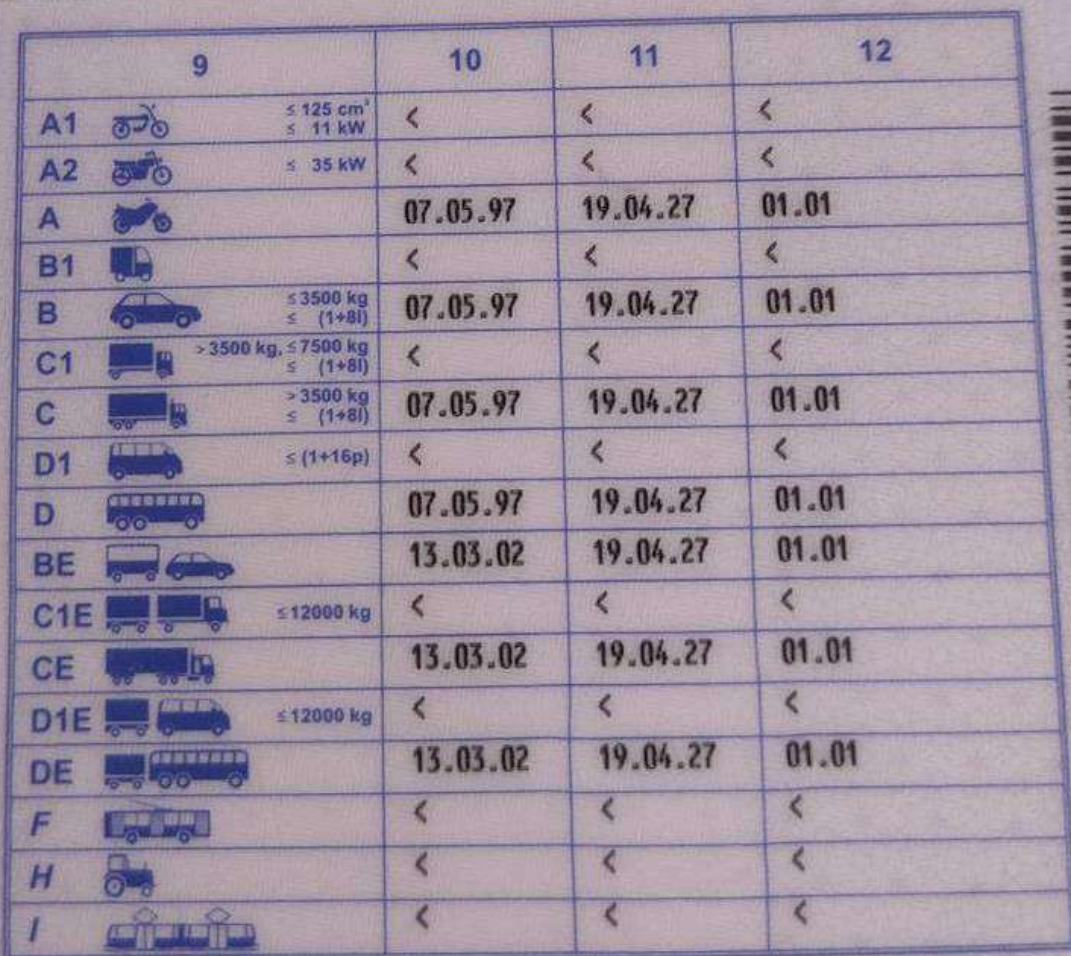 9 10 11 12
A1 ≤ 125 cm³ ≤ 11 kW < < <
A2 ≤ 35 kW < < <
A 07.05.97 19.04.27 01.01
B1 < < <
B ≤ 3500 kg ≤ (1+8l) 07.05.97 19.04.27 01.01
C1 > 3500 kg, ≤ 7500 kg ≤ (1+8l) < < <
C > 3500 kg ≤ (1+8l) 07.05.97 19.04.27 01.01
D1 ≤ (1+16p) < < <
D 07.05.97 19.04.27 01.01
BE 13.03.02 19.04.27 01.01
C1E ≤ 12000 kg < < <
CE 13.03.02 19.04.27 01.01
D1E ≤ 12000 kg < < <
DE 13.03.02 19.04.27 01.01
F < < <
H < < <
I < < <